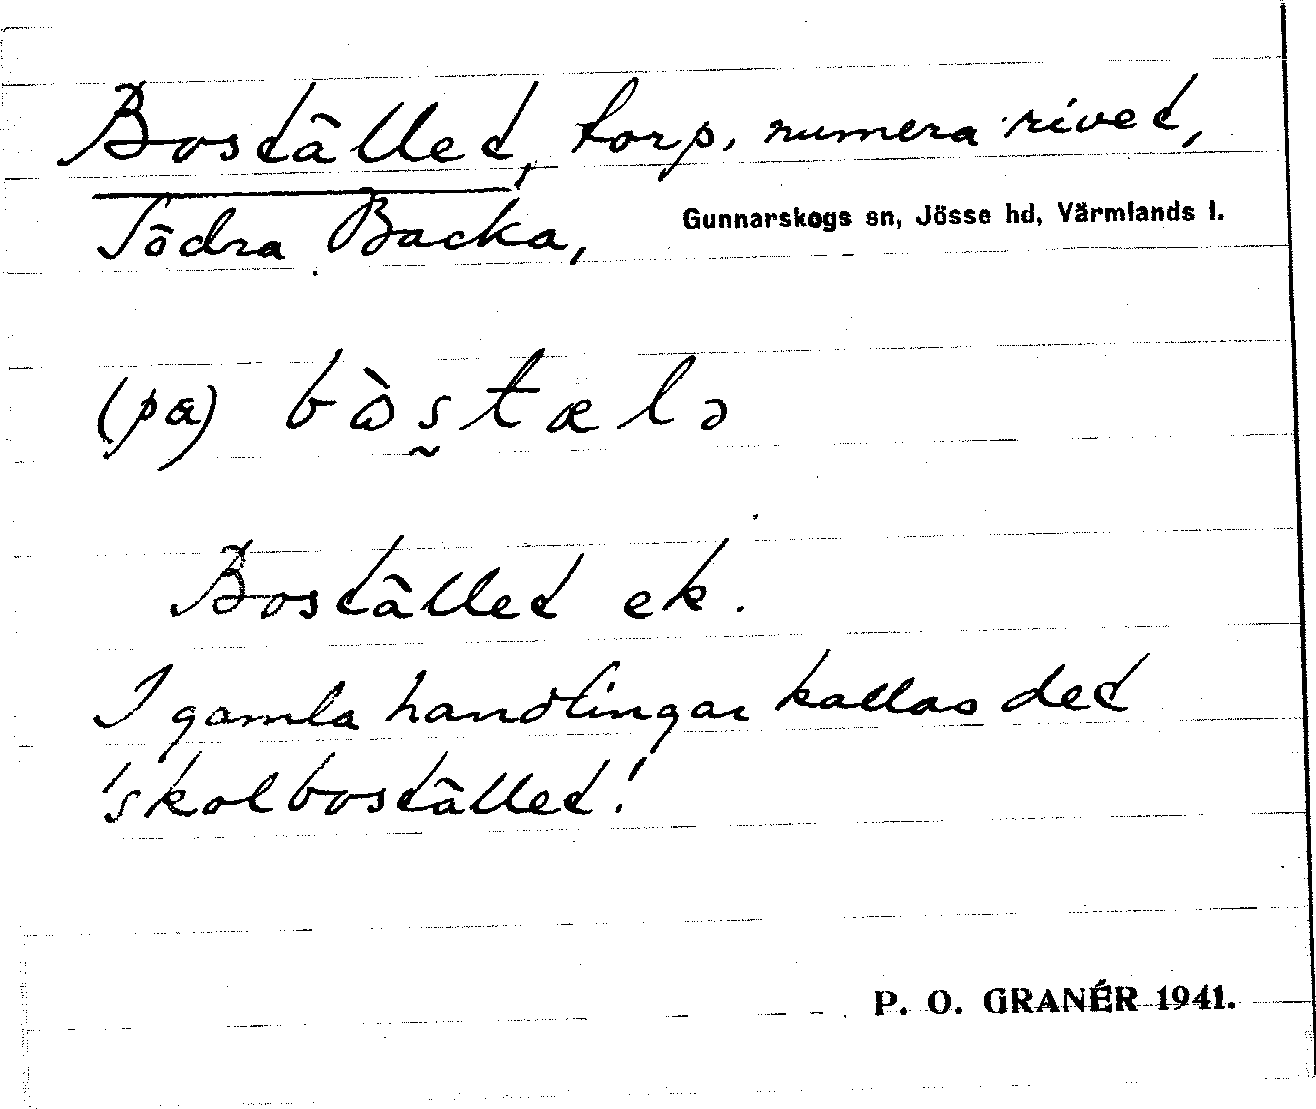 Bostället, torp, numera rivet,
Södra Backa, Gunnarskogs sn, Jösse hd, Värmlands l.
(pa) bὼs̰tælə
Bostället ek.
I gamla handlingar kallas det
'skolbostället'.
P. O. GRANÉR 1941.